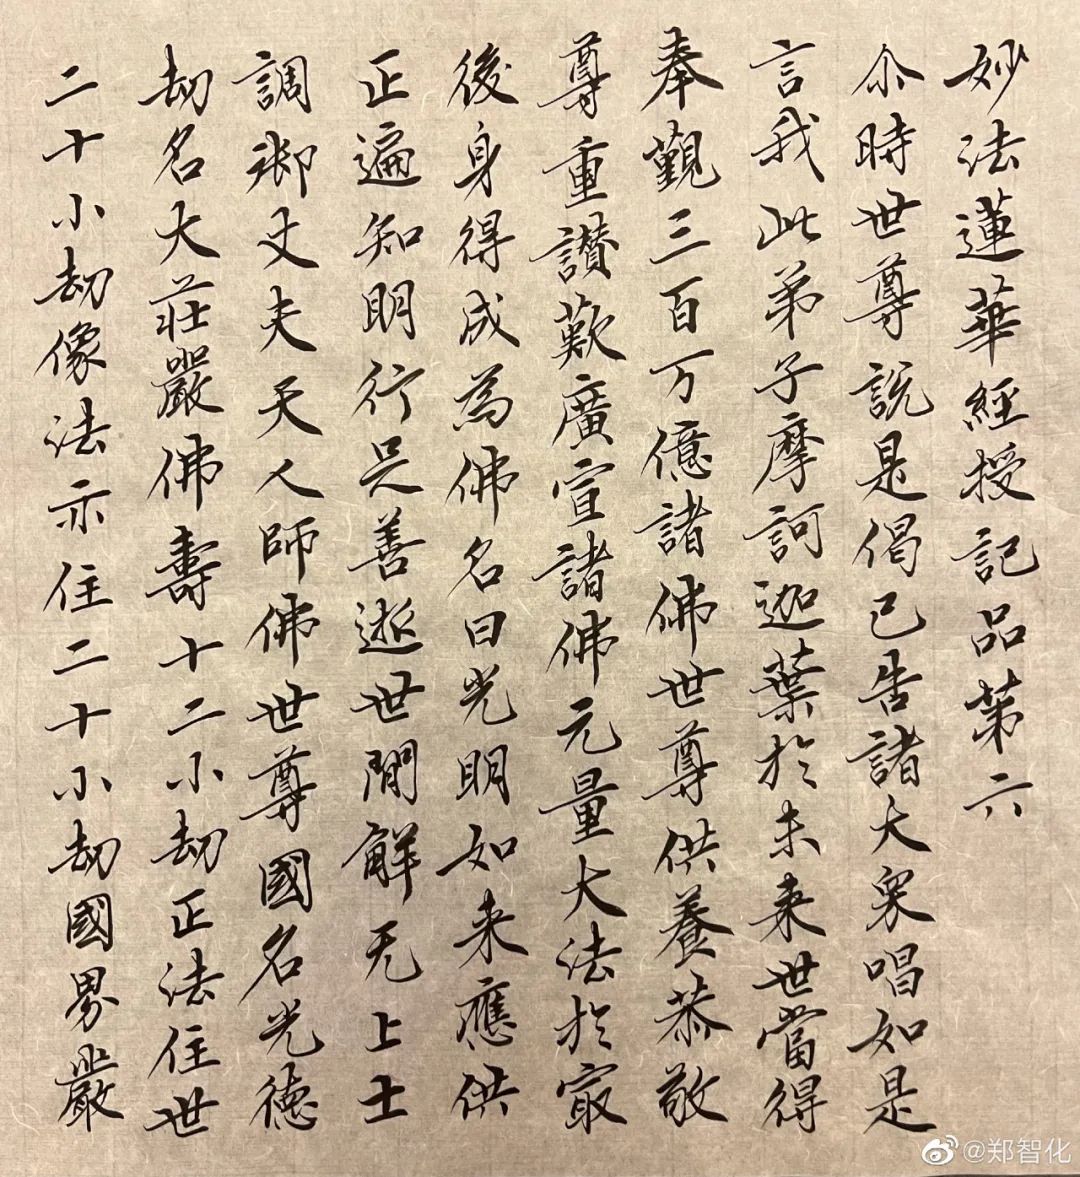 妙法蓮華經授記品第六
尒時世尊說是偈已告諸大衆唱如是
言我此弟子摩訶迦葉於未来世當得
奉覲三百万億諸佛世尊供養恭敬
尊重讃歎廣宣諸佛元量大法於冣
後身得成為佛名曰光明如来應供
正遍知明行足善逝世間解无上士
調御丈夫天人師佛世尊國名光德
劫名大莊嚴佛壽十二小劫正法住世
二十小劫像法亦住二十小劫國界嚴
@郑智化